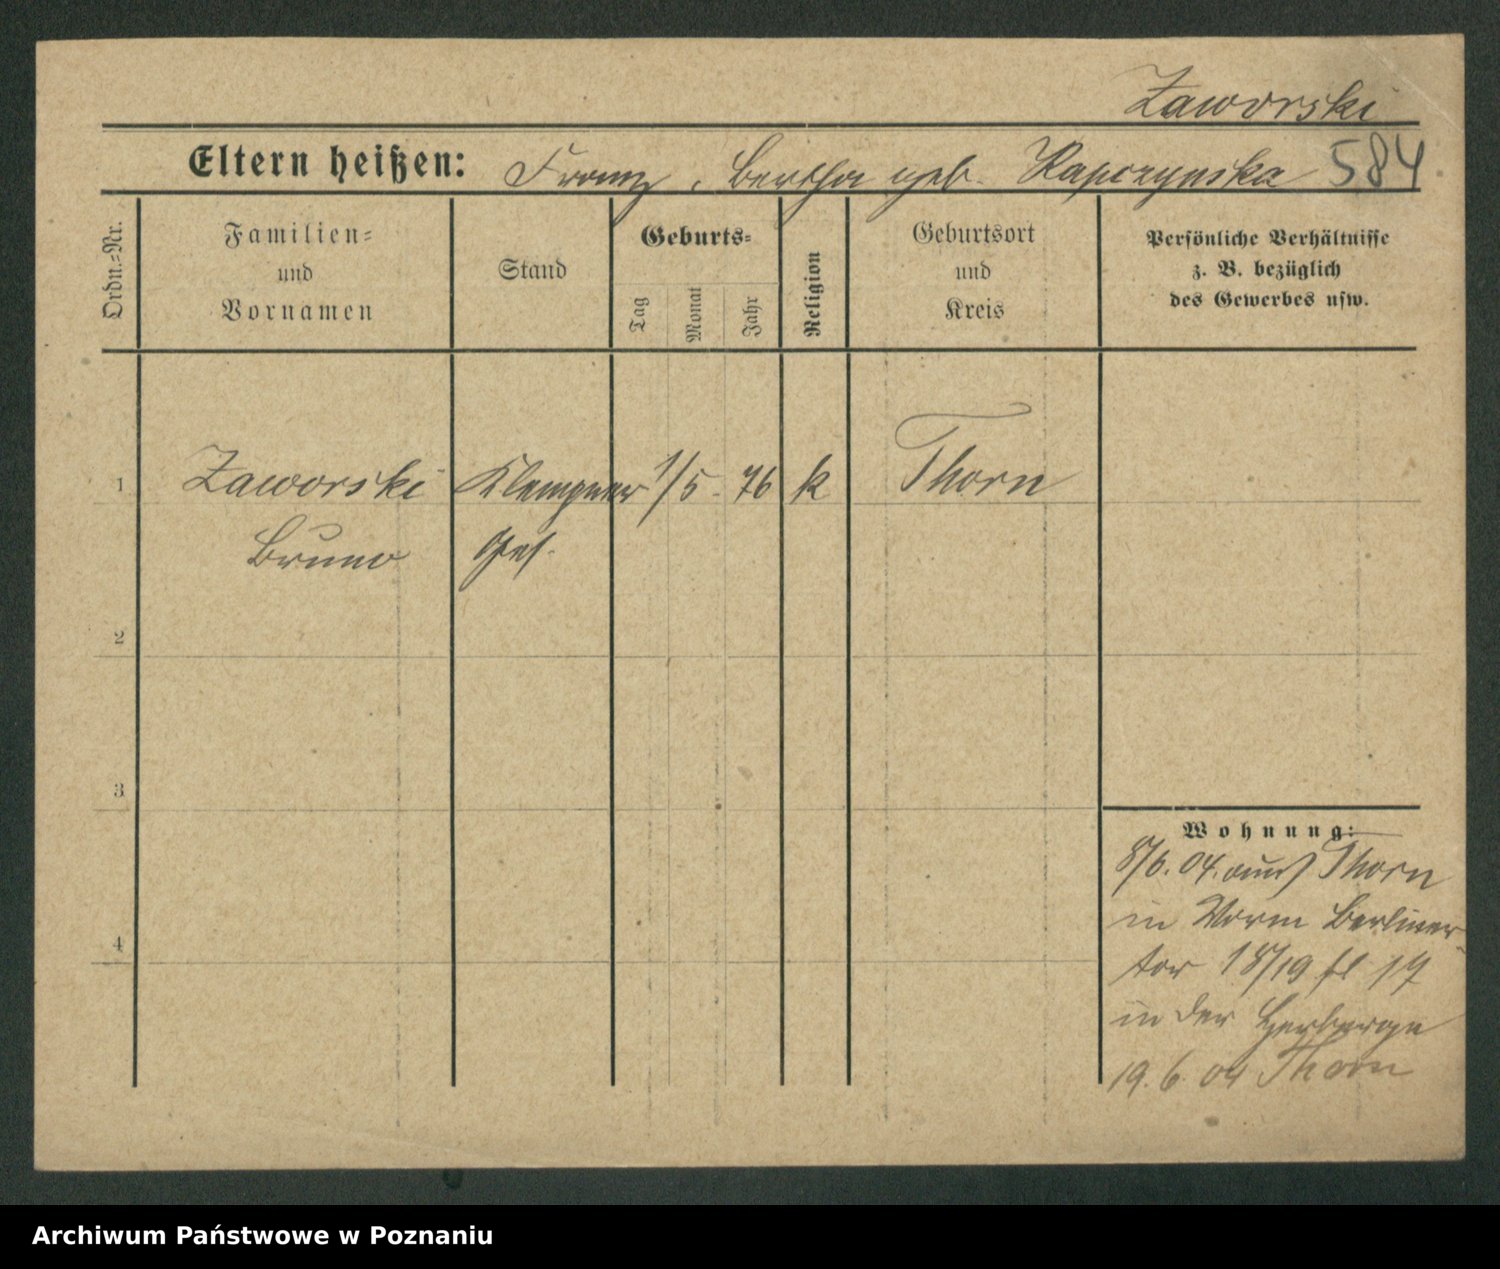 Zaworski
Eltern heißen: Franz, Bertha geb. Kapczynska 584
Ordn.-Nr.
Familien-
und
Vornamen
Stand
Geburts-
Tag
Monat
Jahr
Religion
Geburtsort
und
Kreis
Persönliche Verhältnisse
z. B. bezüglich
des Gewerbes usw.
1 Zaworski Klempner 1/5. 76 k Thorn
Bruno Ges.
2
3
4
Wohnung:
8/6. 04. aus Thorn
in Worm Berliner-
tor 18/19 19
in der Herberge
19. 6. 04 Thorn
Archiwum Państwowe w Poznaniu